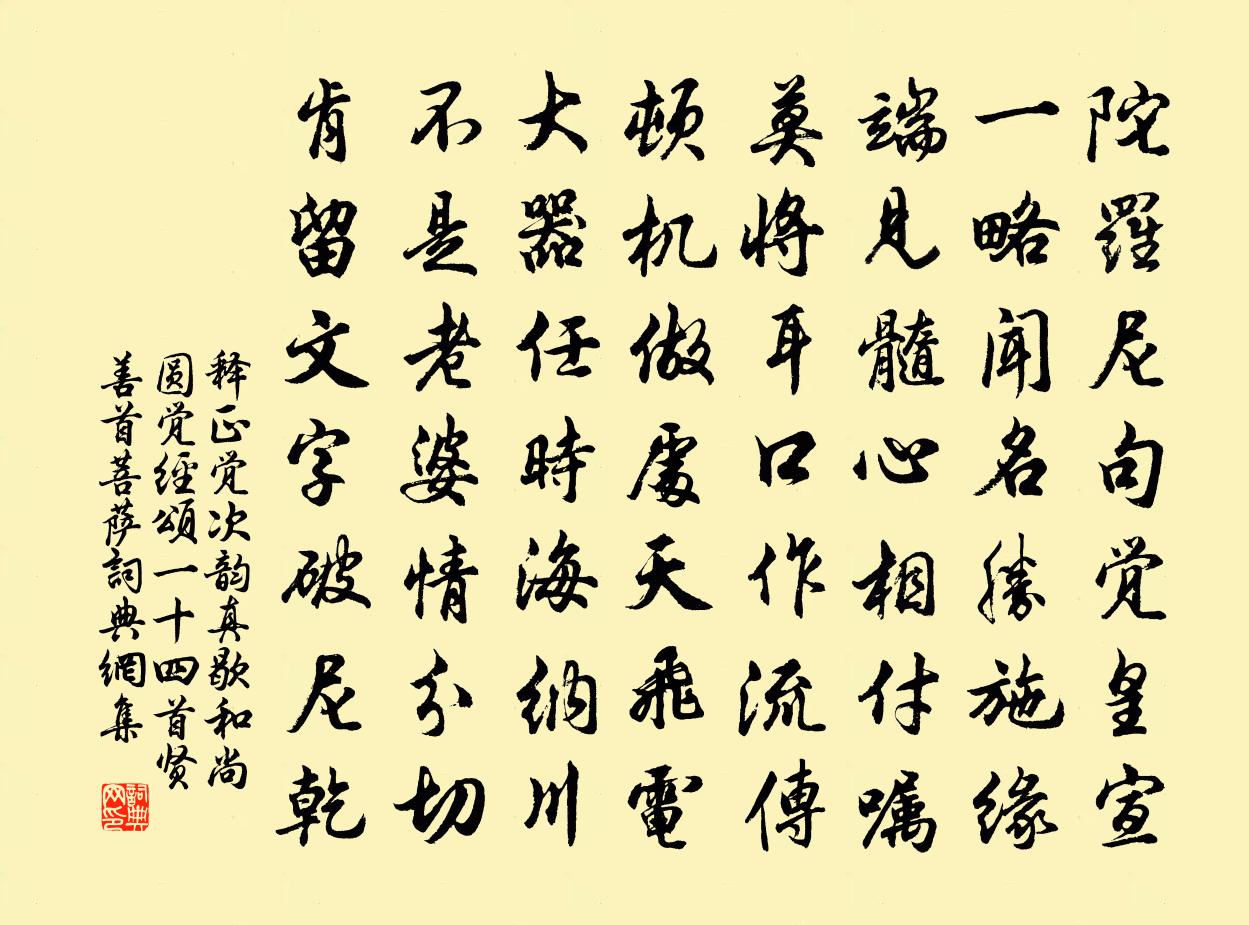 陀羅尼句觉皇宣
一略闻名勝施缘
端見髓心相付嘱
莫將耳口作流傳
頓机做處天飛電
大器任時海納川
不是老婆情分切
肯留文字破尼乾
释正觉次韵真歇和尚
圆觉經頌一十四首贤
善首菩萨詞典網集
詞典网印